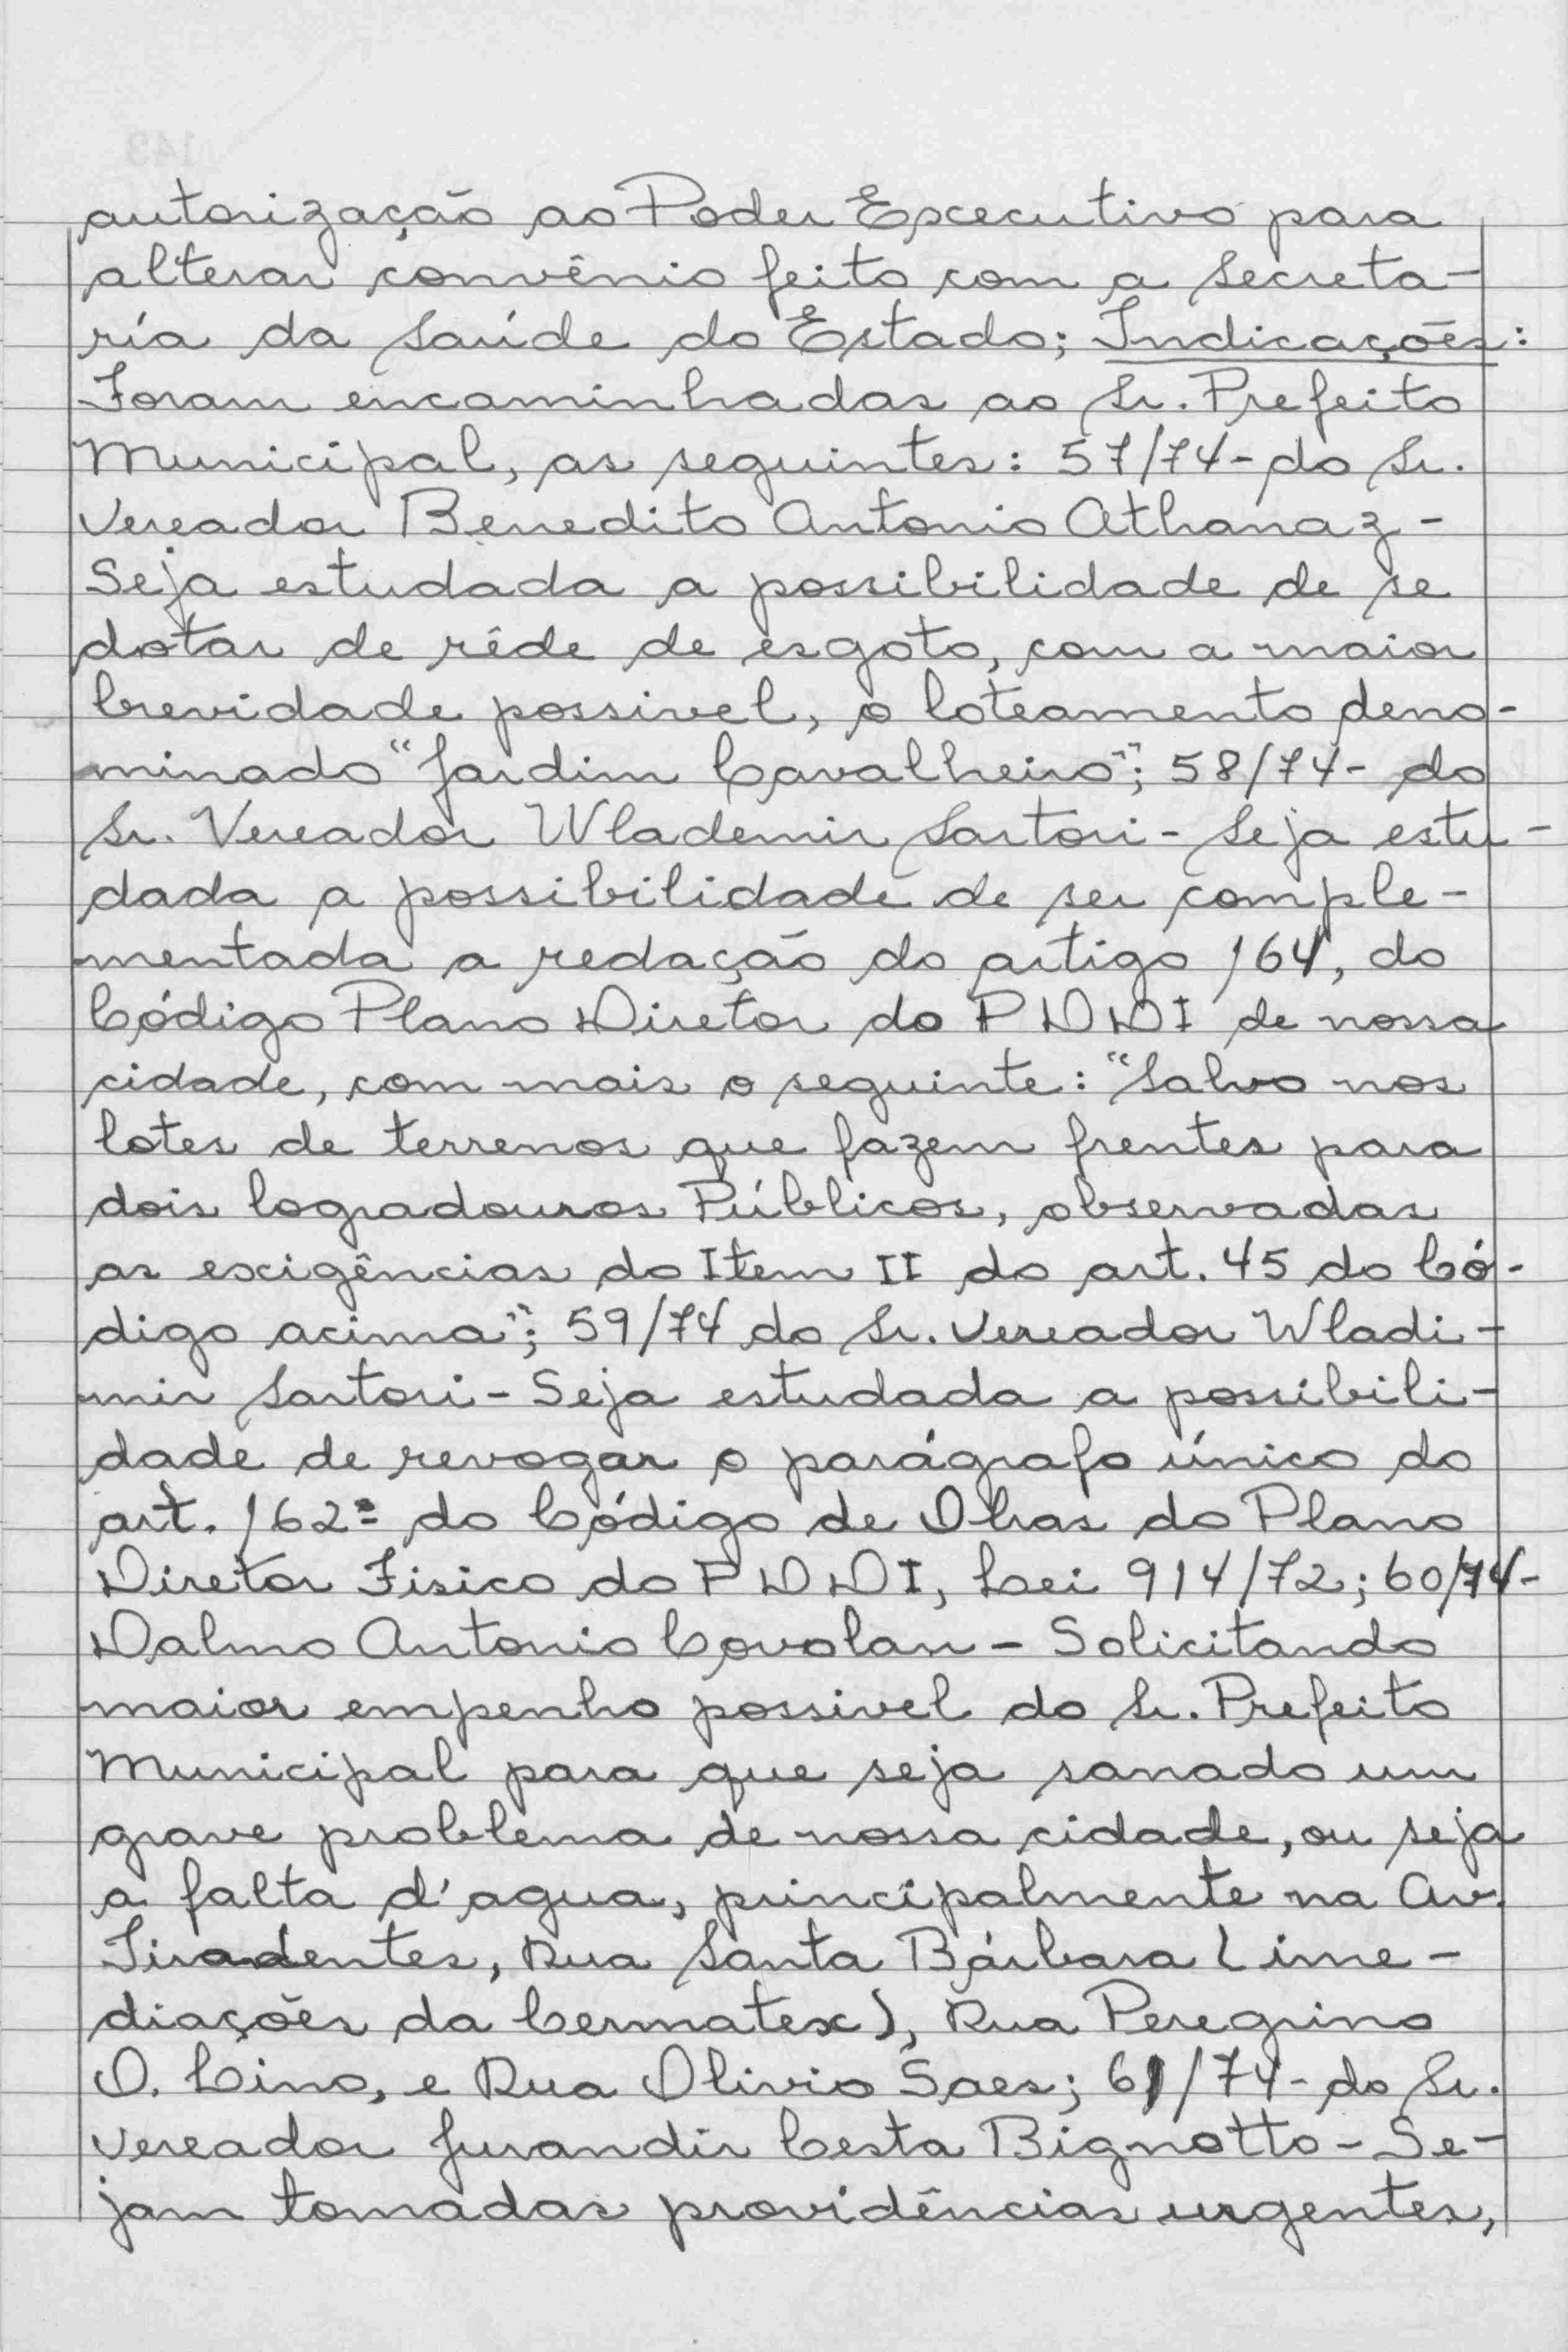 autorização ao Poder Executivo para
alterar convênio feito com a Secreta-
ria da Saúde do Estado; Indicações:
Foram encaminhadas ao Sr. Prefeito
Municipal, as seguintes: 57/74- do Sr.
Vereador Benedito Antonio Athanaz -
Seja estudada a possibilidade de se
dotar de rêde de esgoto, com a maior
brevidade possivel, o loteamento deno-
minado "Jardim Cavalheiro"; 58/74- do
Sr. Vereador Wlademir Sartori - Seja estu-
dada a possibilidade de ser comple-
mentada a redação do artigo 164, do
Código Plano Diretor do PDDI de nossa
cidade, com mais o seguinte: "Salvo nos
lotes de terrenos que fazem frentes para
dois logradouros Públicos, observadas
as exigências do Item II do art. 45 do Có-
digo acima"; 59/74 do Sr. Vereador Wladi-
mir Sartori - Seja estudada a possibili-
dade de revogar o parágrafo único do
art. 162º do Código de Obras do Plano
Diretor Fisico do PDDI, Lei 914/72; 60/74-
Dalmo Antonio Covolan - Solicitando
maior empenho possivel do Sr. Prefeito
Municipal para que seja sanado um
grave problema de nossa cidade, ou seja
a falta d'agua, principalmente na Av.
Tiradentes, Rua Santa Bárbara (ime-
diações da Cermatex), Rua Peregrino
O. Lino, e Rua Olivio Saes; 61/74- do Sr.
Vereador Jurandir Cesta Bignotto - Se-
jam tomadas providências urgentes,